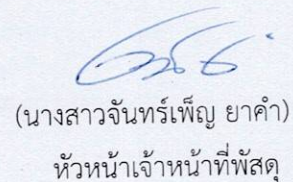 (นางสาวจันทร์เพ็ญ ยาคำ)
หัวหน้าเจ้าหน้าที่พัสดุ